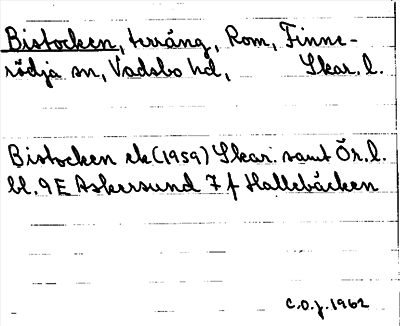 Bistocken, terräng, Rom, Finne-
rödja sn, Vadsbo hd, Skar. l.
Bistocken ek (1959) Skar. samt Ör. l.
bl. 9E Askersund 7 f Hallebäcken
C.O.J. 1962